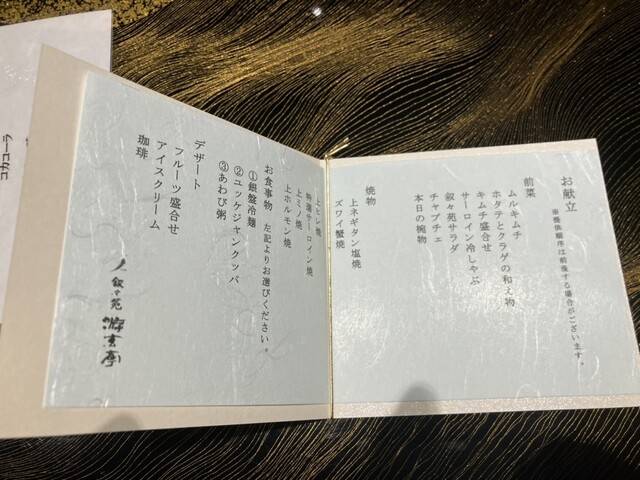 お献立
※提供順序は前後する場合がございます。
前菜
ムルキムチ
ホタテとクラゲの和え物
キムチ盛合せ
サーロイン冷しゃぶ
叙々苑サラダ
チャプチェ
本日の椀物
焼物
上ネギタン塩焼
ズワイ蟹焼
上ヒレ焼
特選サーロイン焼
上ミノ焼
上ホルモン焼
お食事物 左記よりお選びください。
①銀盤冷麺
②ユッケジャンクッパ
③あわび粥
デザート
フルーツ盛合せ
アイスクリーム
珈琲
叙々苑 游玄亭
コカコーラ